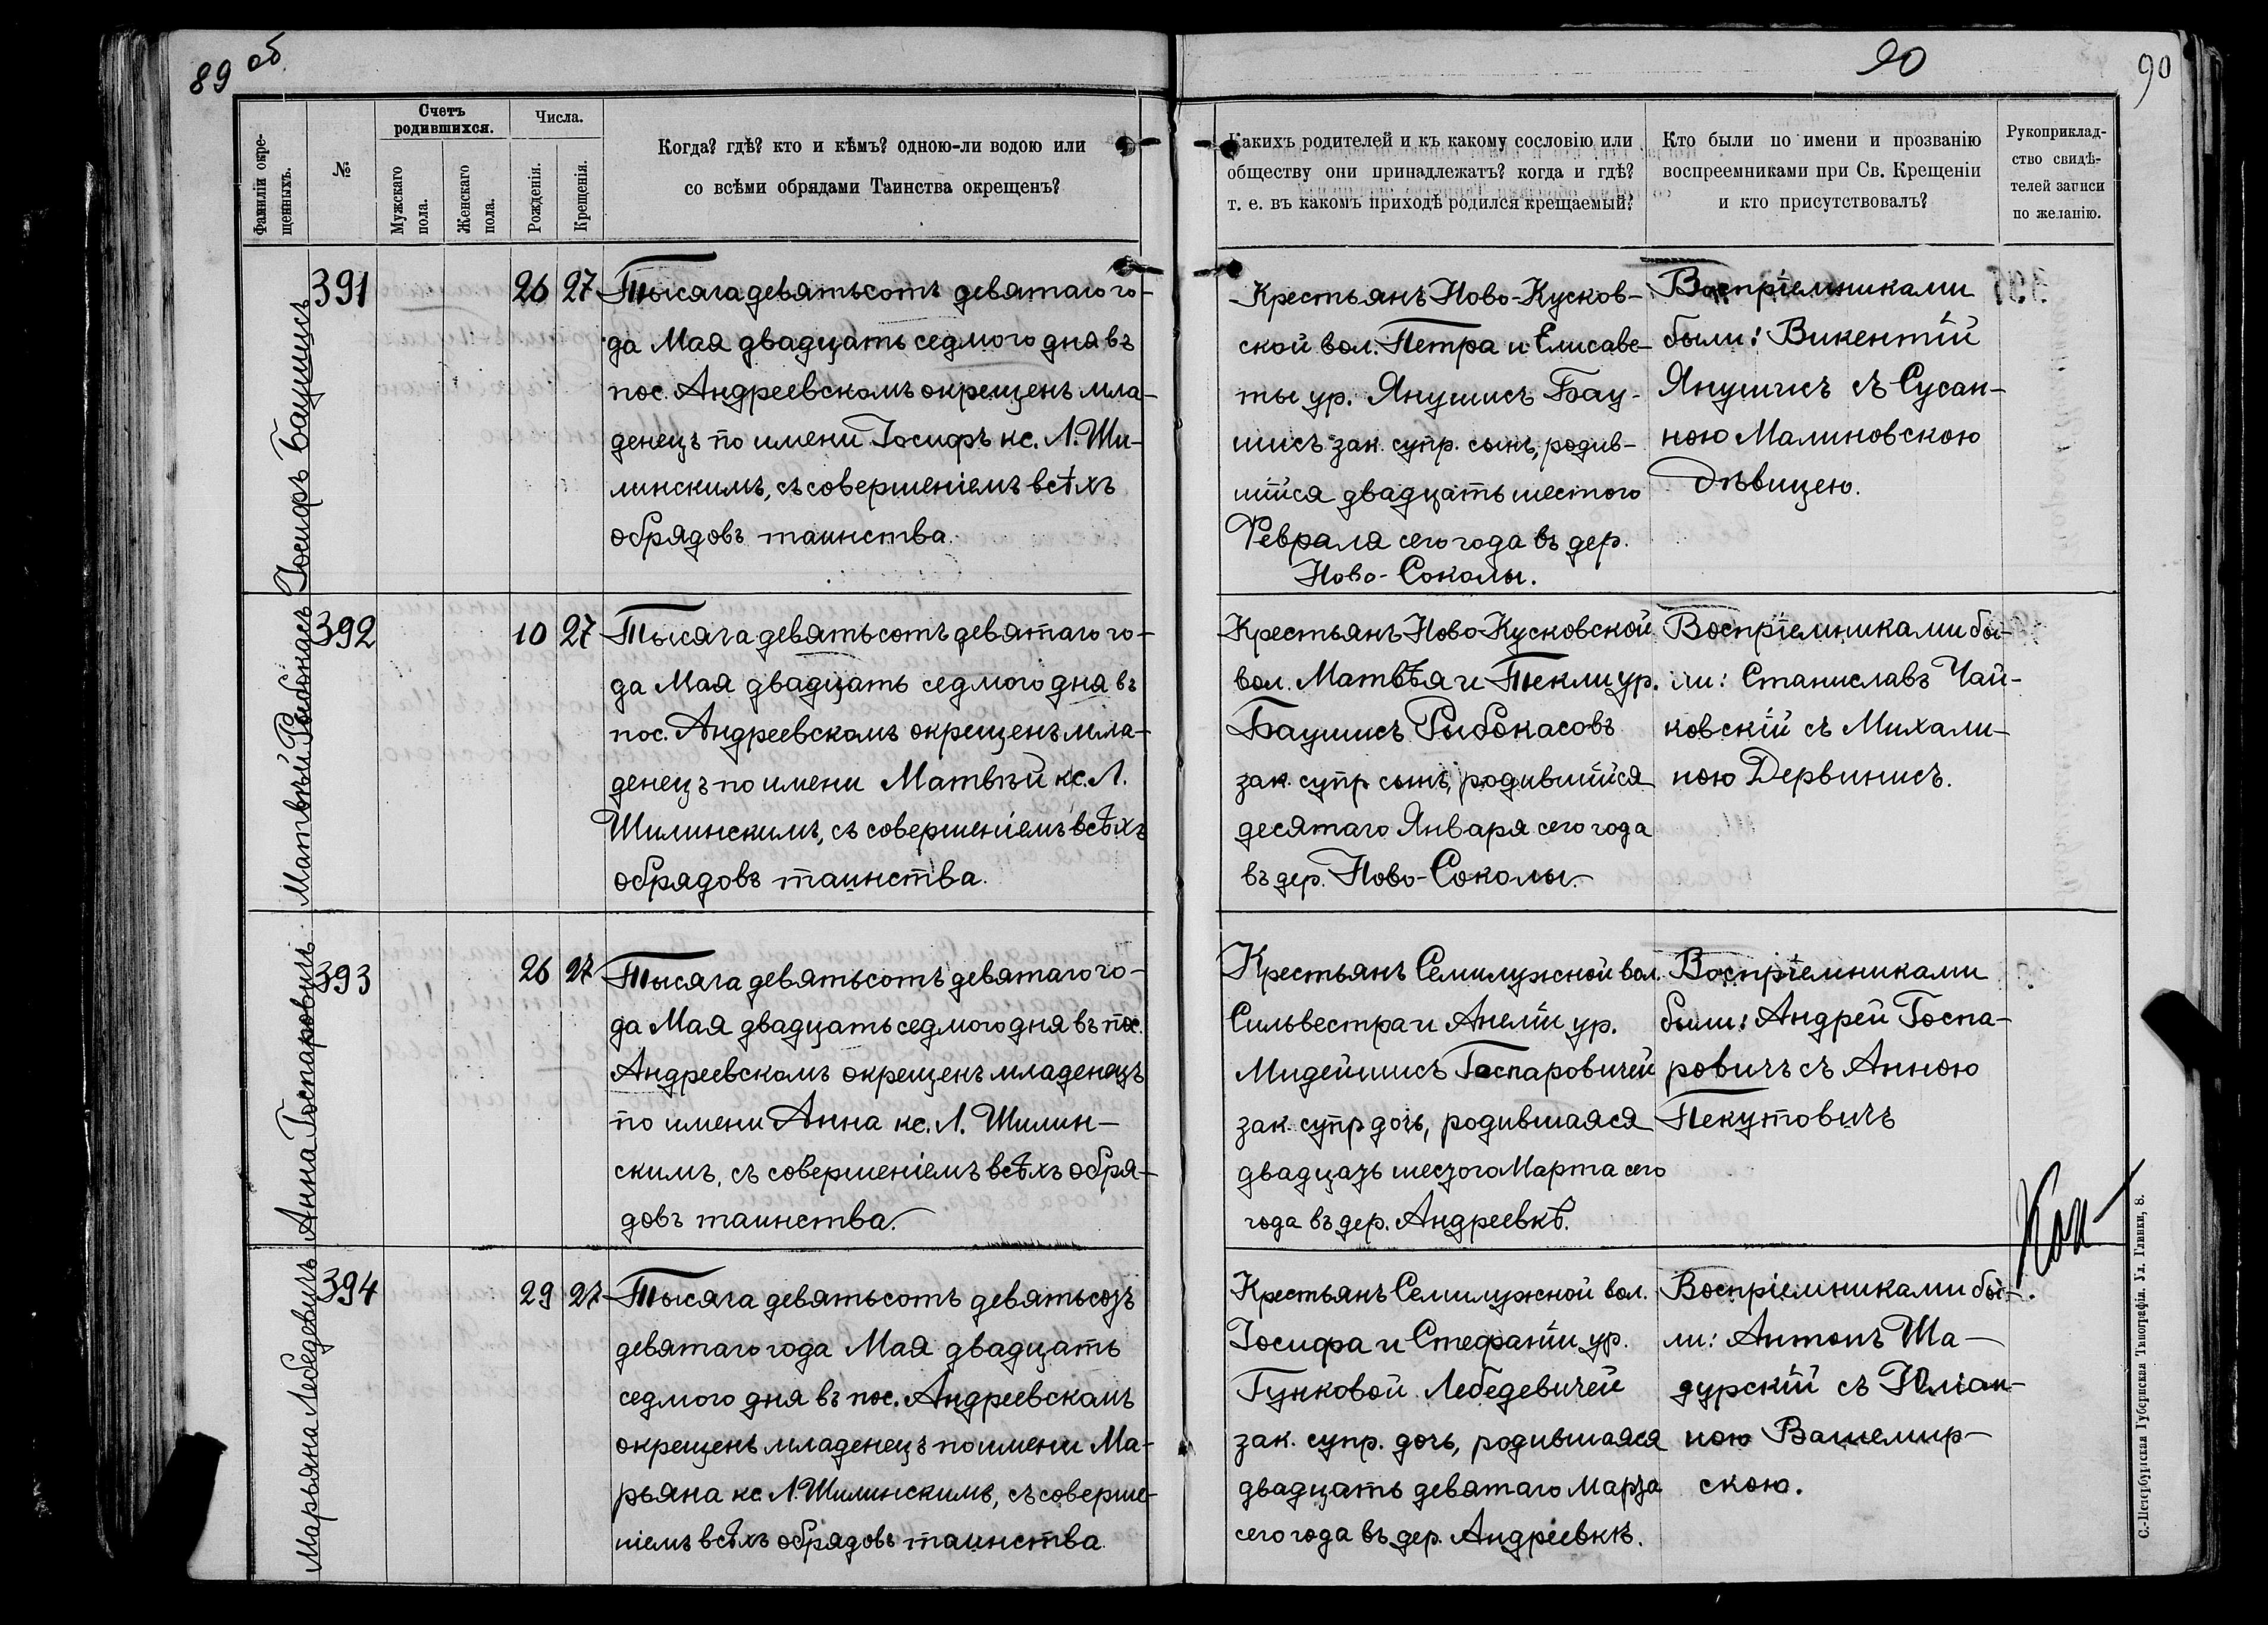 89 об.
90
90
Фамиліи окре-
щенныхъ.
№
Счетъ
родившихся.
Мужскаго
пола.
Женскаго
пола.
Числа.
Рожденія.
Крещенія.
Когда? гдѣ? кто и кѣмъ? одною-ли водою или
со всѣми обрядами Таинства окрещенъ?
Какихъ родителей и къ какому сословію или
обществу они принадлежатъ? когда и гдѣ?
т. е. въ какомъ приходѣ родился крещаемый?
Кто были по имени и прозванію
воспреемниками при Св. Крещеніи
и кто присутствовалъ?
Рукоприклад-
ство свидѣ-
телей записи
по желанію.
Іосифъ Баушисъ
391
26
27
Тысяча девятьсотъ девятаго го-
да Мая двадцать седмого дня въ
пос. Андреевскомъ окрещенъ мла-
денецъ по имени Іосифъ кс. Л. Ши-
линскимъ, съ совершеніемъ всѣхъ
обрядовъ таинства.
Крестьянъ Ново-Кусков-
ской вол. Петра и Елисаве-
ты ур. Янушисъ Бау-
шисъ зак. супр. сынъ, родив-
шійся двадцать шестого
Февраля сего года въ дер.
Ново-Соколы.
Воспріемниками
были: Викентій
Янушисъ съ Сусан-
ною Малиновскою
дѣвицею.
Матвѣй Рыбокасъ
392
10
27
Тысяча девятьсотъ девятаго го-
да Мая двадцать седмого дня въ
пос. Андреевскомъ окрещенъ мла-
денецъ по имени Матвѣй кс. Л.
Шилинскимъ, съ совершеніемъ всѣхъ
обрядовъ таинства.
Крестьянъ Ново-Кусковской
вол. Матвѣя и Теклиур.
Баушисъ Рыбокасовъ
зак. супр. сынъ, родившійся
десятаго Января сего года
въ дер. Ново-Соколы.
Воспріемниками бы-
ли: Станиславъ Чай-
ковскій съ Михали-
ною Дервинисъ.
Анна Госпаровичъ
393
26
27
Тысяча девятьсотъ девятаго го-
да Мая двадцать седмого дня въ пос.
Андреевскомъ окрещенъ младенецъ
по имени Анна кс. Л. Шилин-
скимъ, съ совершеніемъ всѣхъ обря-
довъ таинства.
Крестьянъ Семилужной вол.
Сильвестра и Анеліи ур.
Мидейшисъ Госпаровичей
зак. супр. дочь, родившаяся
двадцать шестого Марта сего
года въ дер. Андреевкѣ.
Воспріемниками
были: Андрей Госпа-
ровичъ съ Анною
Пекутовичъ
Марьяна Лебедевичъ
394
29
27
Тысяча девятьсотъ девятьсотъ
девятаго года Мая двадцать
седмого дня въ пос. Андреевскомъ
окрещенъ младенецъ по имени Ма-
рьяна кс. Л. Шилинскимъ, съ соверше-
ніемъ всѣхъ обрядовъ таинства.
Крестьянъ Семилужной вол.
Іосифа и Стефаніи ур.
Гунковой Лебедевичей
зак. супр. дочь, родившаяся
двадцать девятаго Марта
сего года въ дер. Андреевкѣ.
Воспріемниками бы-
ли: Антонъ Ша-
дурскій съ Юліан-
ною Вашемир-
скою.
С.-Петербургская Губернская Типографія. Ул. Глинки, 8.